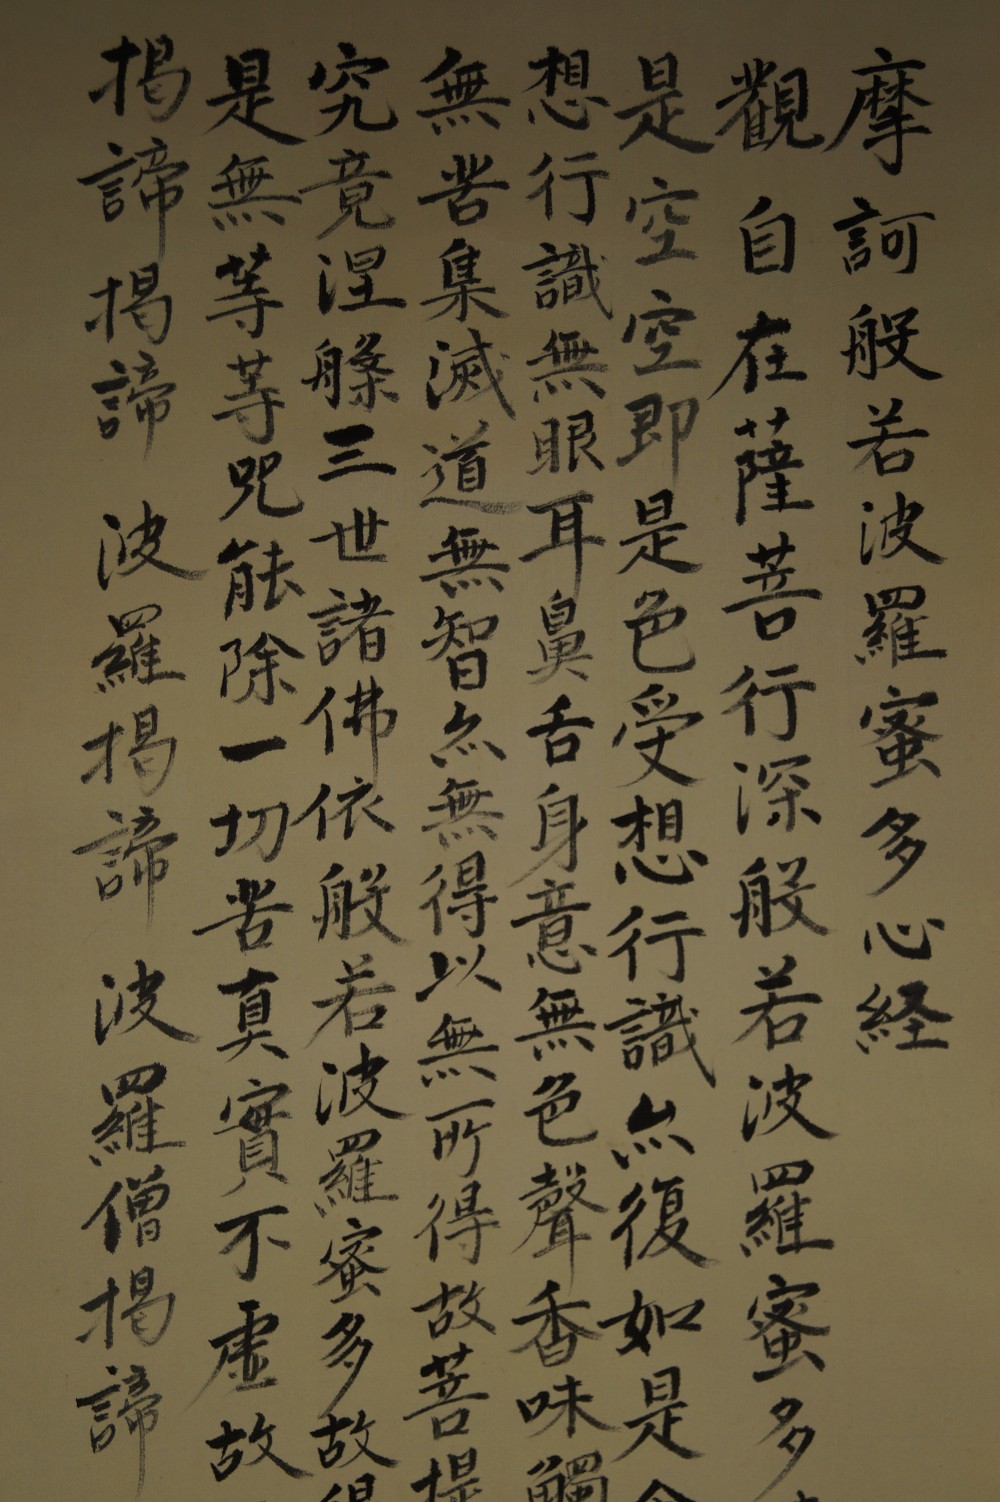 摩訶般若波羅蜜多心経
觀自在薩菩行深般若波羅蜜多
是空空即是色受想行識亦復如是舍
想行識無眼耳鼻舌身意無色聲香味觸
無苦集滅道無智亦無得以無所得故菩提
究竟涅槃三世諸佛依般若波羅蜜多故得
是無等等呪能除一切苦真實不虛故
揭諦揭諦 波羅揭諦 波羅僧揭諦